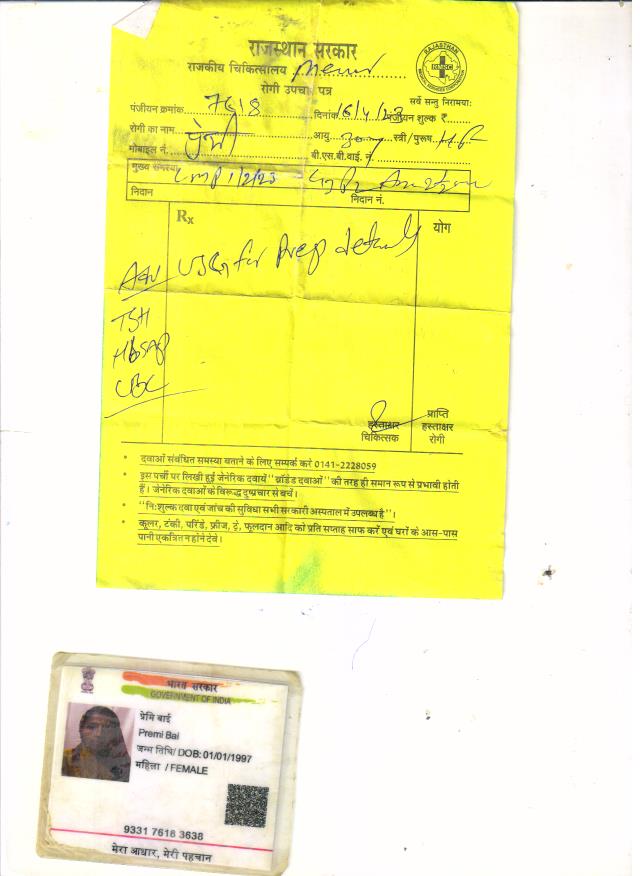 राजस्थान सरकार
राजकीय चिकित्सालय
रोगी उपचार पत्र
सर्वे सन्तु निरामयाः
पंजीयन क्रमांक 7618 दिनांक 16/4/23 पंजीयन शुल्क ₹
रोगी का नाम प्रेमी आयु स्त्री/पुरूष
मोबाइल नं. बी.एस.बी.वाई. नं.
मुख्य समस्या LMP 1/2/23
निदान निदान नं.
Rx योग
Adv USG for Preg details
TSH
HbsAg
CBC
हस्ताक्षर चिकित्सक
प्राप्ति हस्ताक्षर रोगी
• दवाओं संबंधित समस्या बताने के लिए सम्पर्क करे 0141-2228059
• इस पर्ची पर लिखी हुई जेनेरिक दवायें "ब्रॉडेड दवाओं" की तरह ही समान रूप से प्रभावी होती
हैं। जेनेरिक दवाओं के विरूद्ध दुष्प्रचार से बचें।
• "निःशुल्क दवा एवं जांच की सुविधा सभी सरकारी अस्पताल में उपलब्ध है"।
• कूलर, टंकी, परिंडे, फ्रीज, ट्रे, फूलदान आदि को प्रति सप्ताह साफ करें एवं घरों के आस-पास
पानी एकत्रित न होने देवे।
भारत सरकार
GOVERNMENT OF INDIA
प्रेमि बाई
Premi Bai
जन्म तिथि/ DOB: 01/01/1997
महिला / FEMALE
9331 7618 3638
मेरा आधार, मेरी पहचान